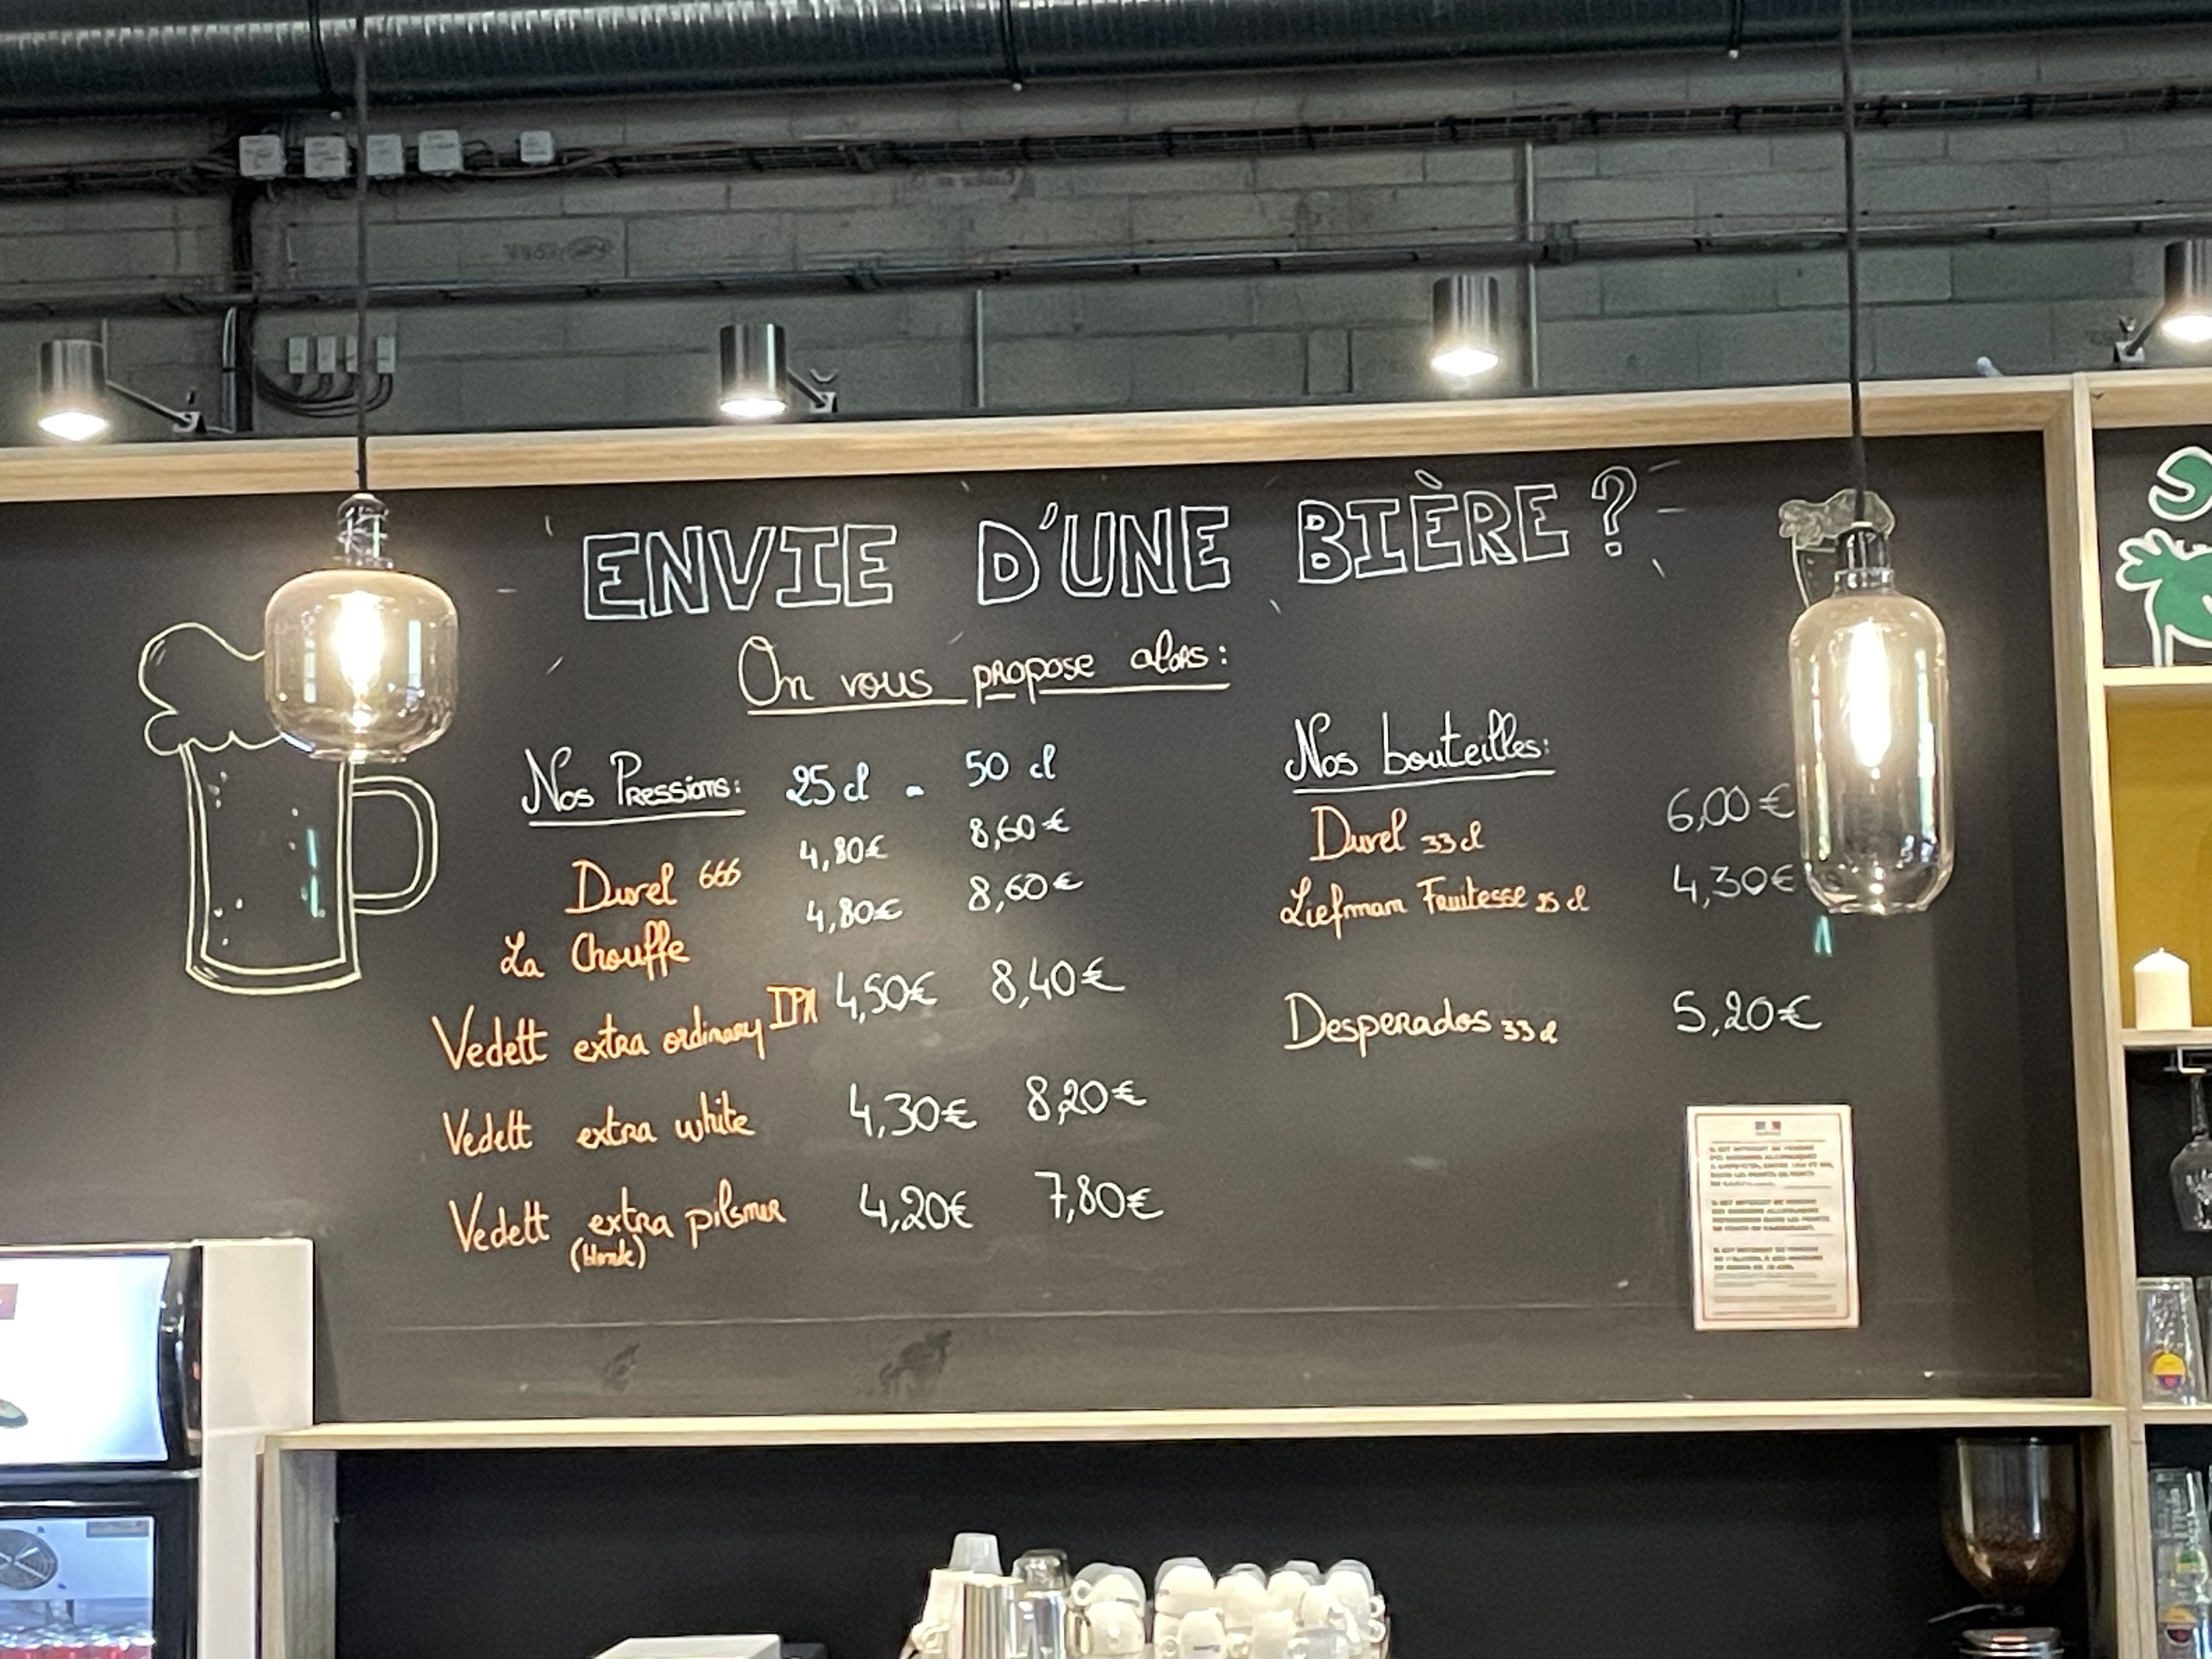 ENVIE D'UNE BIÈRE ?
On vous propose alors :
Nos Pressions : 25 cl - 50 cl
Duvel 666 4,80€ 8,60€
La Chouffe 4,80€ 8,60€
Vedett extra ordinary IPA 4,50€ 8,40€
Vedett extra white 4,30€ 8,20€
Vedett extra pilsner 4,20€ 7,80€
(blonde)
Nos bouteilles :
Duvel 33 cl 6,00€
Liefman Fruitesse 25 cl 4,30€
Desperados 33 cl 5,20€